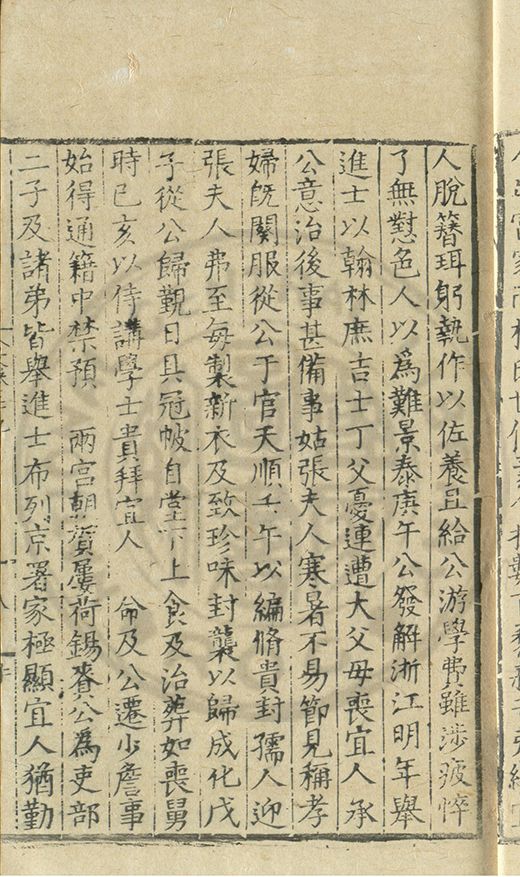 人脫簪珥躬執作以佐養且給公游學費雖涉疲悴
了無懟色人以爲難景泰庚午公發解浙江明年舉
進士以翰林庶吉士丁父憂連遭大父母喪宜人承
公意治後事甚備事姑張夫人寒暑不易節見稱孝
婦旣闋服從公于官天順壬午以編脩貴封孺人迎
張夫人弗至每製新衣及致珍味封襲以歸成化戊
子從公歸覲日具冠帔自堂下上食及治葬如喪舅
時已亥以侍講學士貴拜宜人 命及公遷少詹事
始得通籍中禁預 兩宮朝賀屢荷錫賚公爲吏部
二子及諸弟皆舉進士布列京署家極顯宜人猶勤